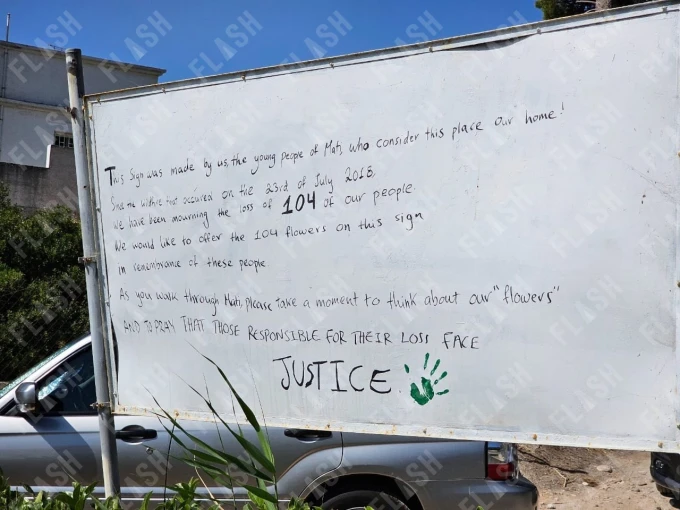 This sign was made by us, the young people of Mati, who consider this place our "home!
Since the wildfire that occured on the 23rd of July 2018,
we have been mourning the loss of 104 of our people.
We would like to offer the 104 flowers on this sign
in remembrance of these people
As you walk through Mati, please take a moment to think about our "flowers"
AND TO PRAY THAT THOSE RESPONSIBLE FOR THEIR LOSS FACE
JUSTICE
FLASH